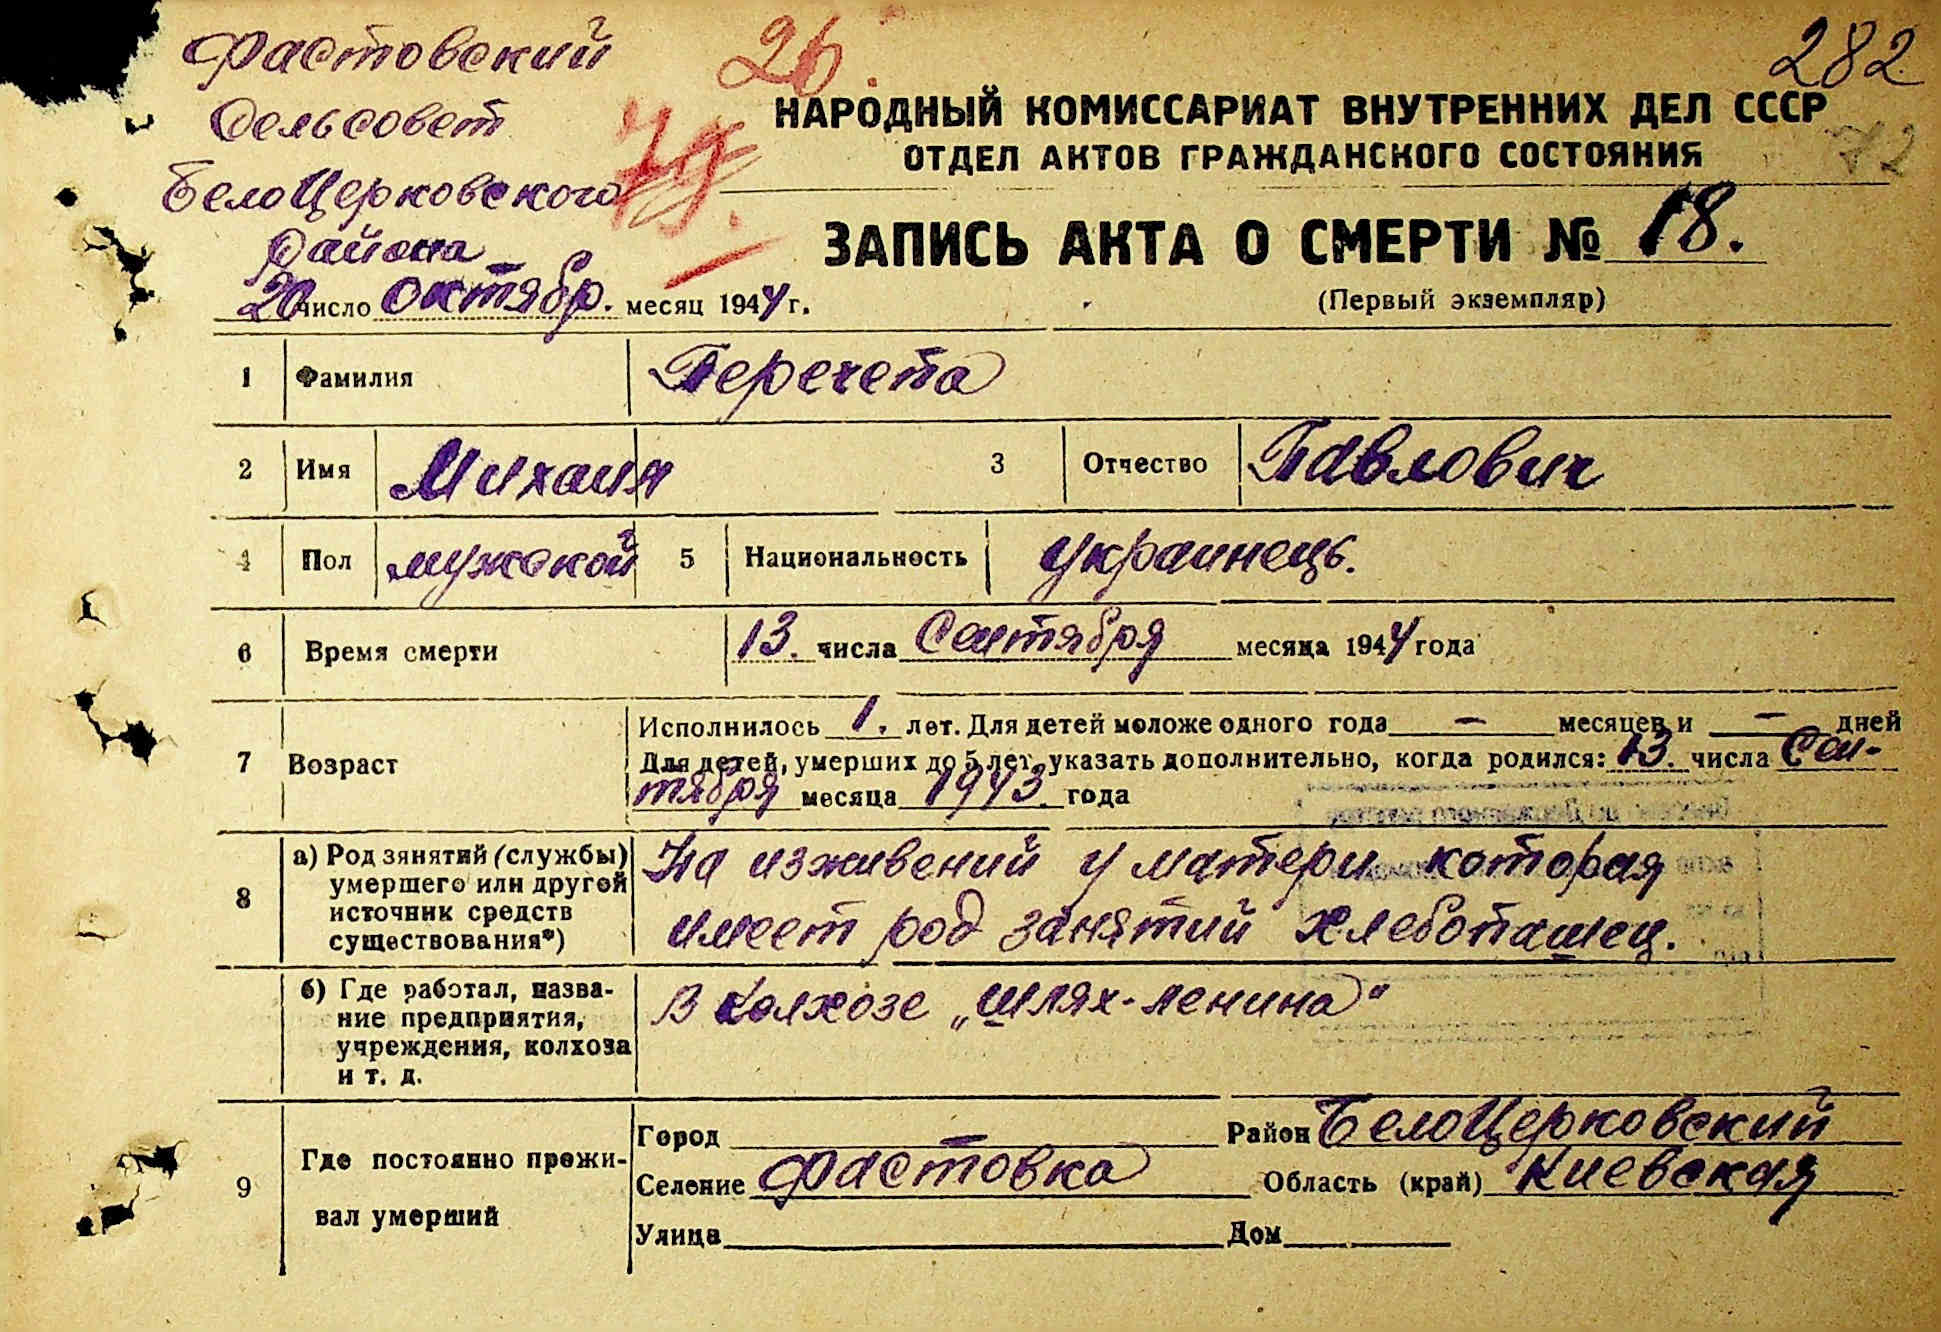 Фастовский
сельсовет
БелоЦерковского
района
26.
282
НАРОДНЫЙ КОМИССАРИАТ ВНУТРЕННИХ ДЕЛ СССР
72
ОТДЕЛ АКТОВ ГРАЖДАНСКОГО СОСТОЯНИЯ
ЗАПИСЬ АКТА О СМЕРТИ № 18.
20 число октябр. месяц 1944 г.
(Первый экземпляр)
1 Фамилия Перечепа
2 Имя Михаил 3 Отчество Павлович
4 Пол мужской 5 Национальность украинець.
6 Время смерти 13. числа Сентября месяца 1944 года
7 Возраст
Исполнилось 1. лет. Для детей моложе одного года — месяцев и — дней
Для детей, умерших до 5 лет, указать дополнительно, когда родился: 13. числа Сен-
тября месяца 1943. года
8 а) Род занятий (службы)
умершего или другой
источник средств
существования*)
На изживений у матери которая
имеет род занятий хлебопашец.
б) Где работал, назва-
ние предприятия,
учреждения, колхоза
и т. д.
В колхозе „Шлях-ленина"
9 Где постоянно прожи-
вал умерший
Город — Район БелоЦерковский
Селение Фастовка Область (край) Киевская
Улица Дом